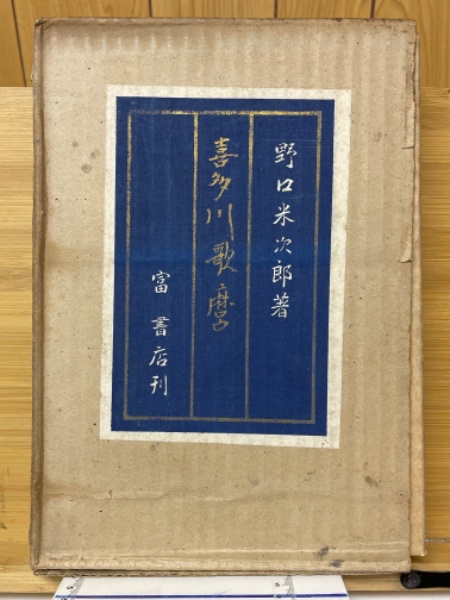 野口米次郎著
喜多川歌麿
富書店刊